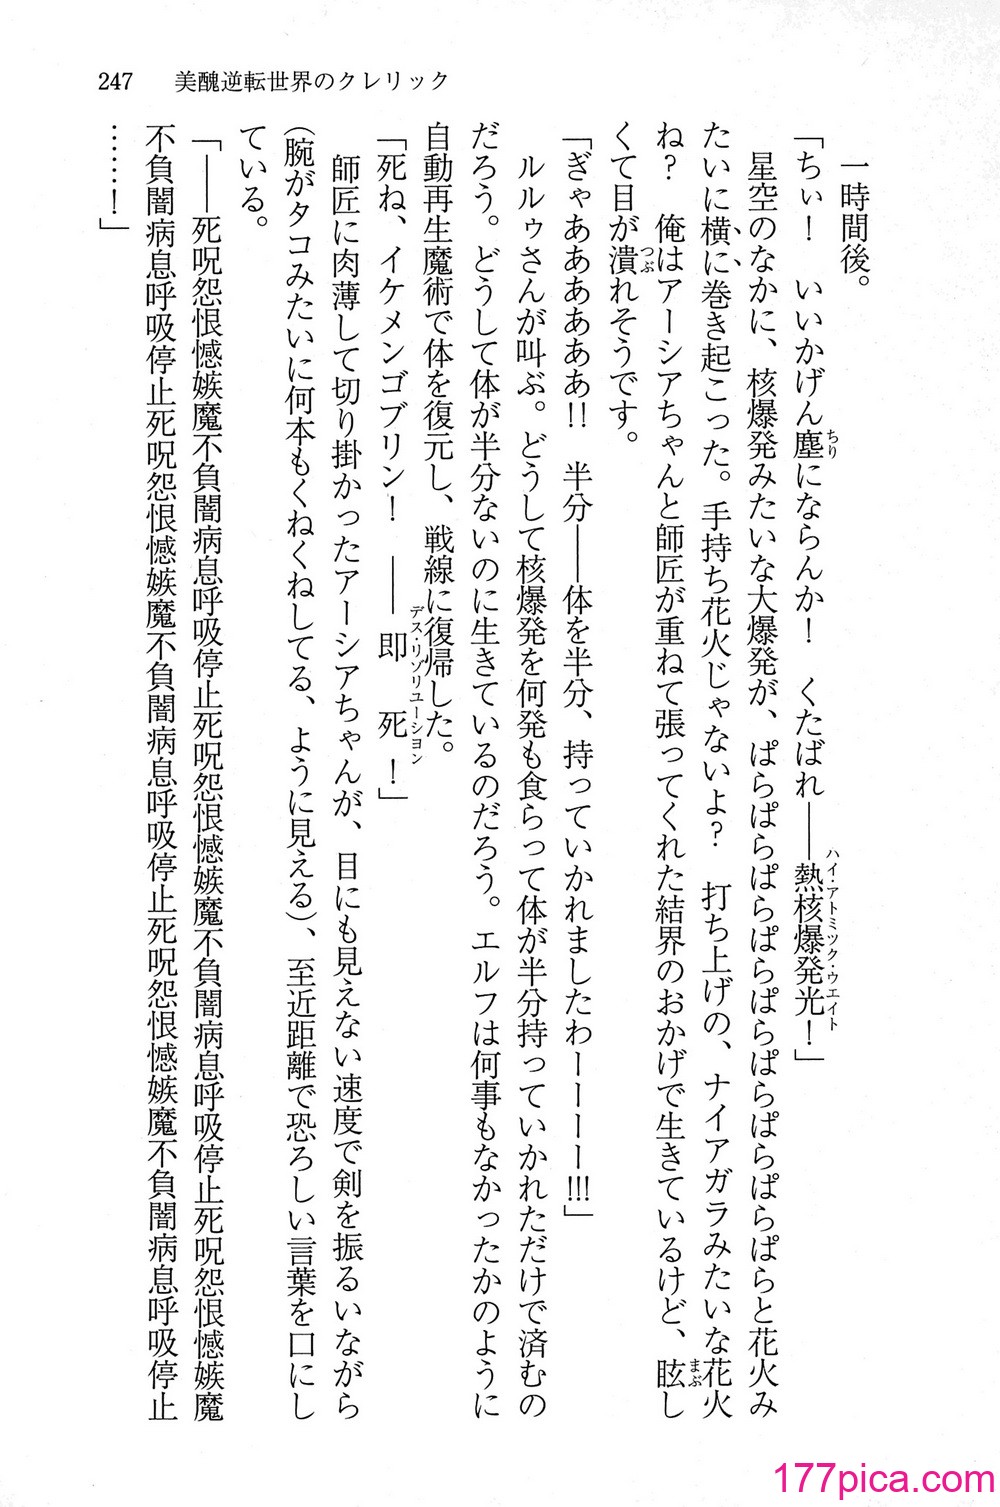 247　美醜逆転世界のクレリック
一時間後。
「ちぃ！　いいかげん塵にならんか！　くたばれ――熱核爆発光！」
ちり
ハイ・アトミック・ウエイト
星空のなかに、核爆発みたいな大爆発が、ぱらぱらぱらぱらぱらぱらぱらぱらと花火み
たいに横に巻き起こった。手持ち花火じゃないよ？　打ち上げの、ナイアガラみたいな花火
ね？　俺はアーシアちゃんと師匠が重ねて張ってくれた結界のおかげで生きているけど、眩し
まぶ
くて目が潰れそうです。
つぶ
「ぎゃああああああ!!　半分――体を半分、持っていかれましたわーーーー!!!」
ルルゥさんが叫ぶ。どうして核爆発を何発も食らって体が半分持っていかれただけで済むの
だろう。どうして体が半分ないのに生きているのだろう。エルフは何事もなかったかのように
自動再生魔術で体を復元し、戦線に復帰した。
「死ね、イケメンゴブリン！　――即　死！」
デス・リゾリューション
師匠に肉薄して切り掛かったアーシアちゃんが、目にも見えない速度で剣を振るいながら
（腕がタコみたいに何本もくねくねしてる、ように見える）、至近距離で恐ろしい言葉を口にし
ている。
「――死呪怨恨憾嫉魔不負闇病息呼吸停止死呪怨恨憾嫉魔不負闇病息呼吸停止死呪怨恨憾嫉魔
不負闇病息呼吸停止死呪怨恨憾嫉魔不負闇病息呼吸停止死呪怨恨憾嫉魔不負闇病息呼吸停止
……！」
177pica.com